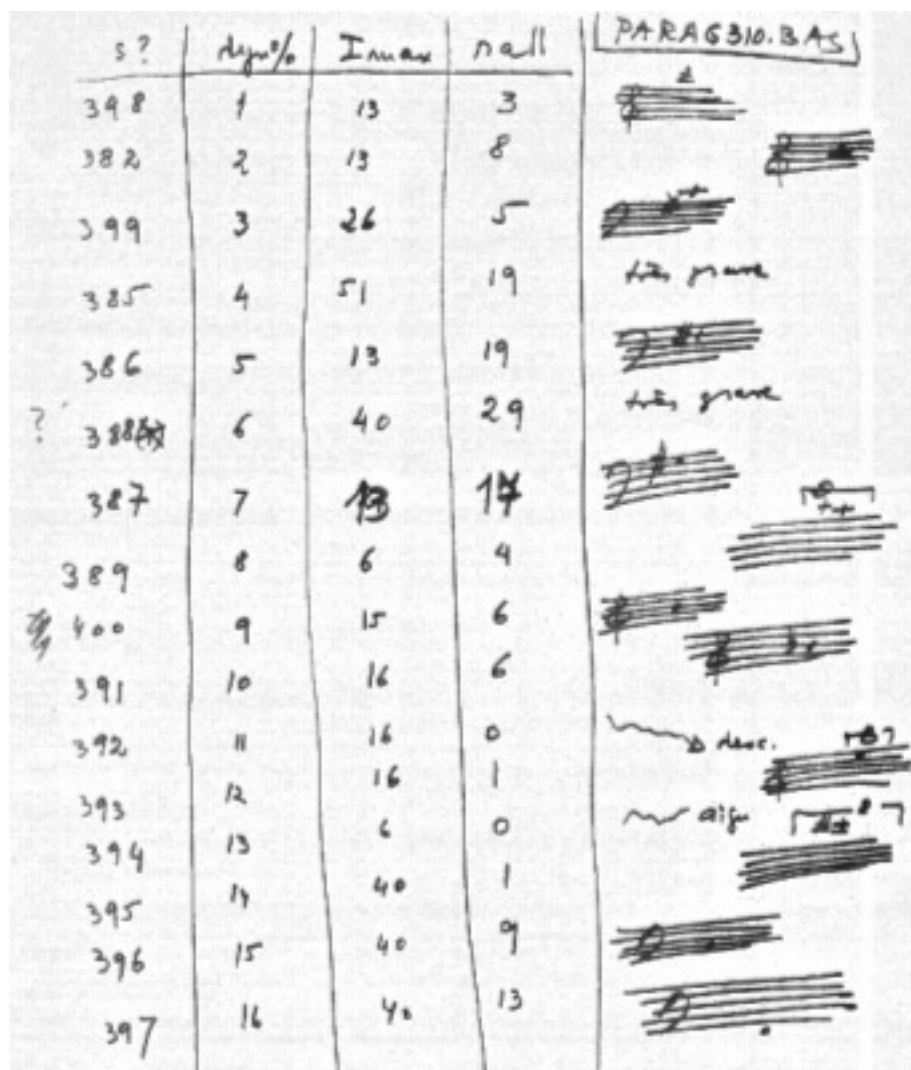 s? dyn% Imax nall PARAG310.BAS
398 1 13 3
382 2 13 8
399 3 26 5
385 4 51 19 très grave
386 5 13 19
? 388 6 40 29 très grave
387 7 13 17
389 8 6 4
400 9 15 6
391 10 16 6
392 11 16 0 desc.
393 12 16 1
394 13 6 0 aigu
395 14 40 1
396 15 40 9
397 16 40 13